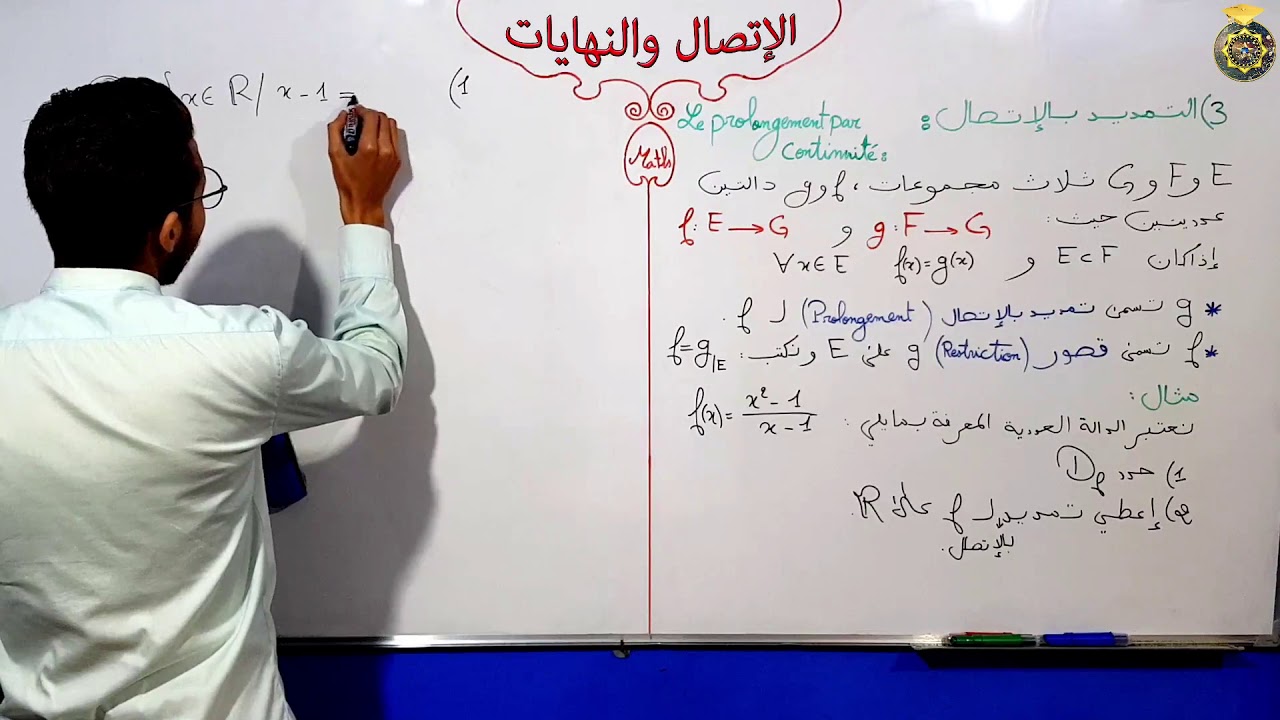 الإتصال والنهايات
Maths
3) التمديد بالإتصال :
Le prolongement par
continnité :
E و F و G ثلاث مجموعات ، f و g دالتين
عدديتين حيث : g : F → G و f : E → G
إذا كان E ⊂ F و f(x) = g(x) ∀x ∈ E
* g تسمى تمديد بالإتصال (Prolongement) لـ f .
* f تسمى قصور (Restriction) g على E ونكتب : f = g|E
مثال :
نعتبر الدالة العددية المعرفة بمايلي : f(x) = (x² - 1)/(x - 1)
1) حدد Df
2) إعطي تمديد لـ f على ℝ .
بالإتصال .
1) x ∈ ℝ / x - 1 =